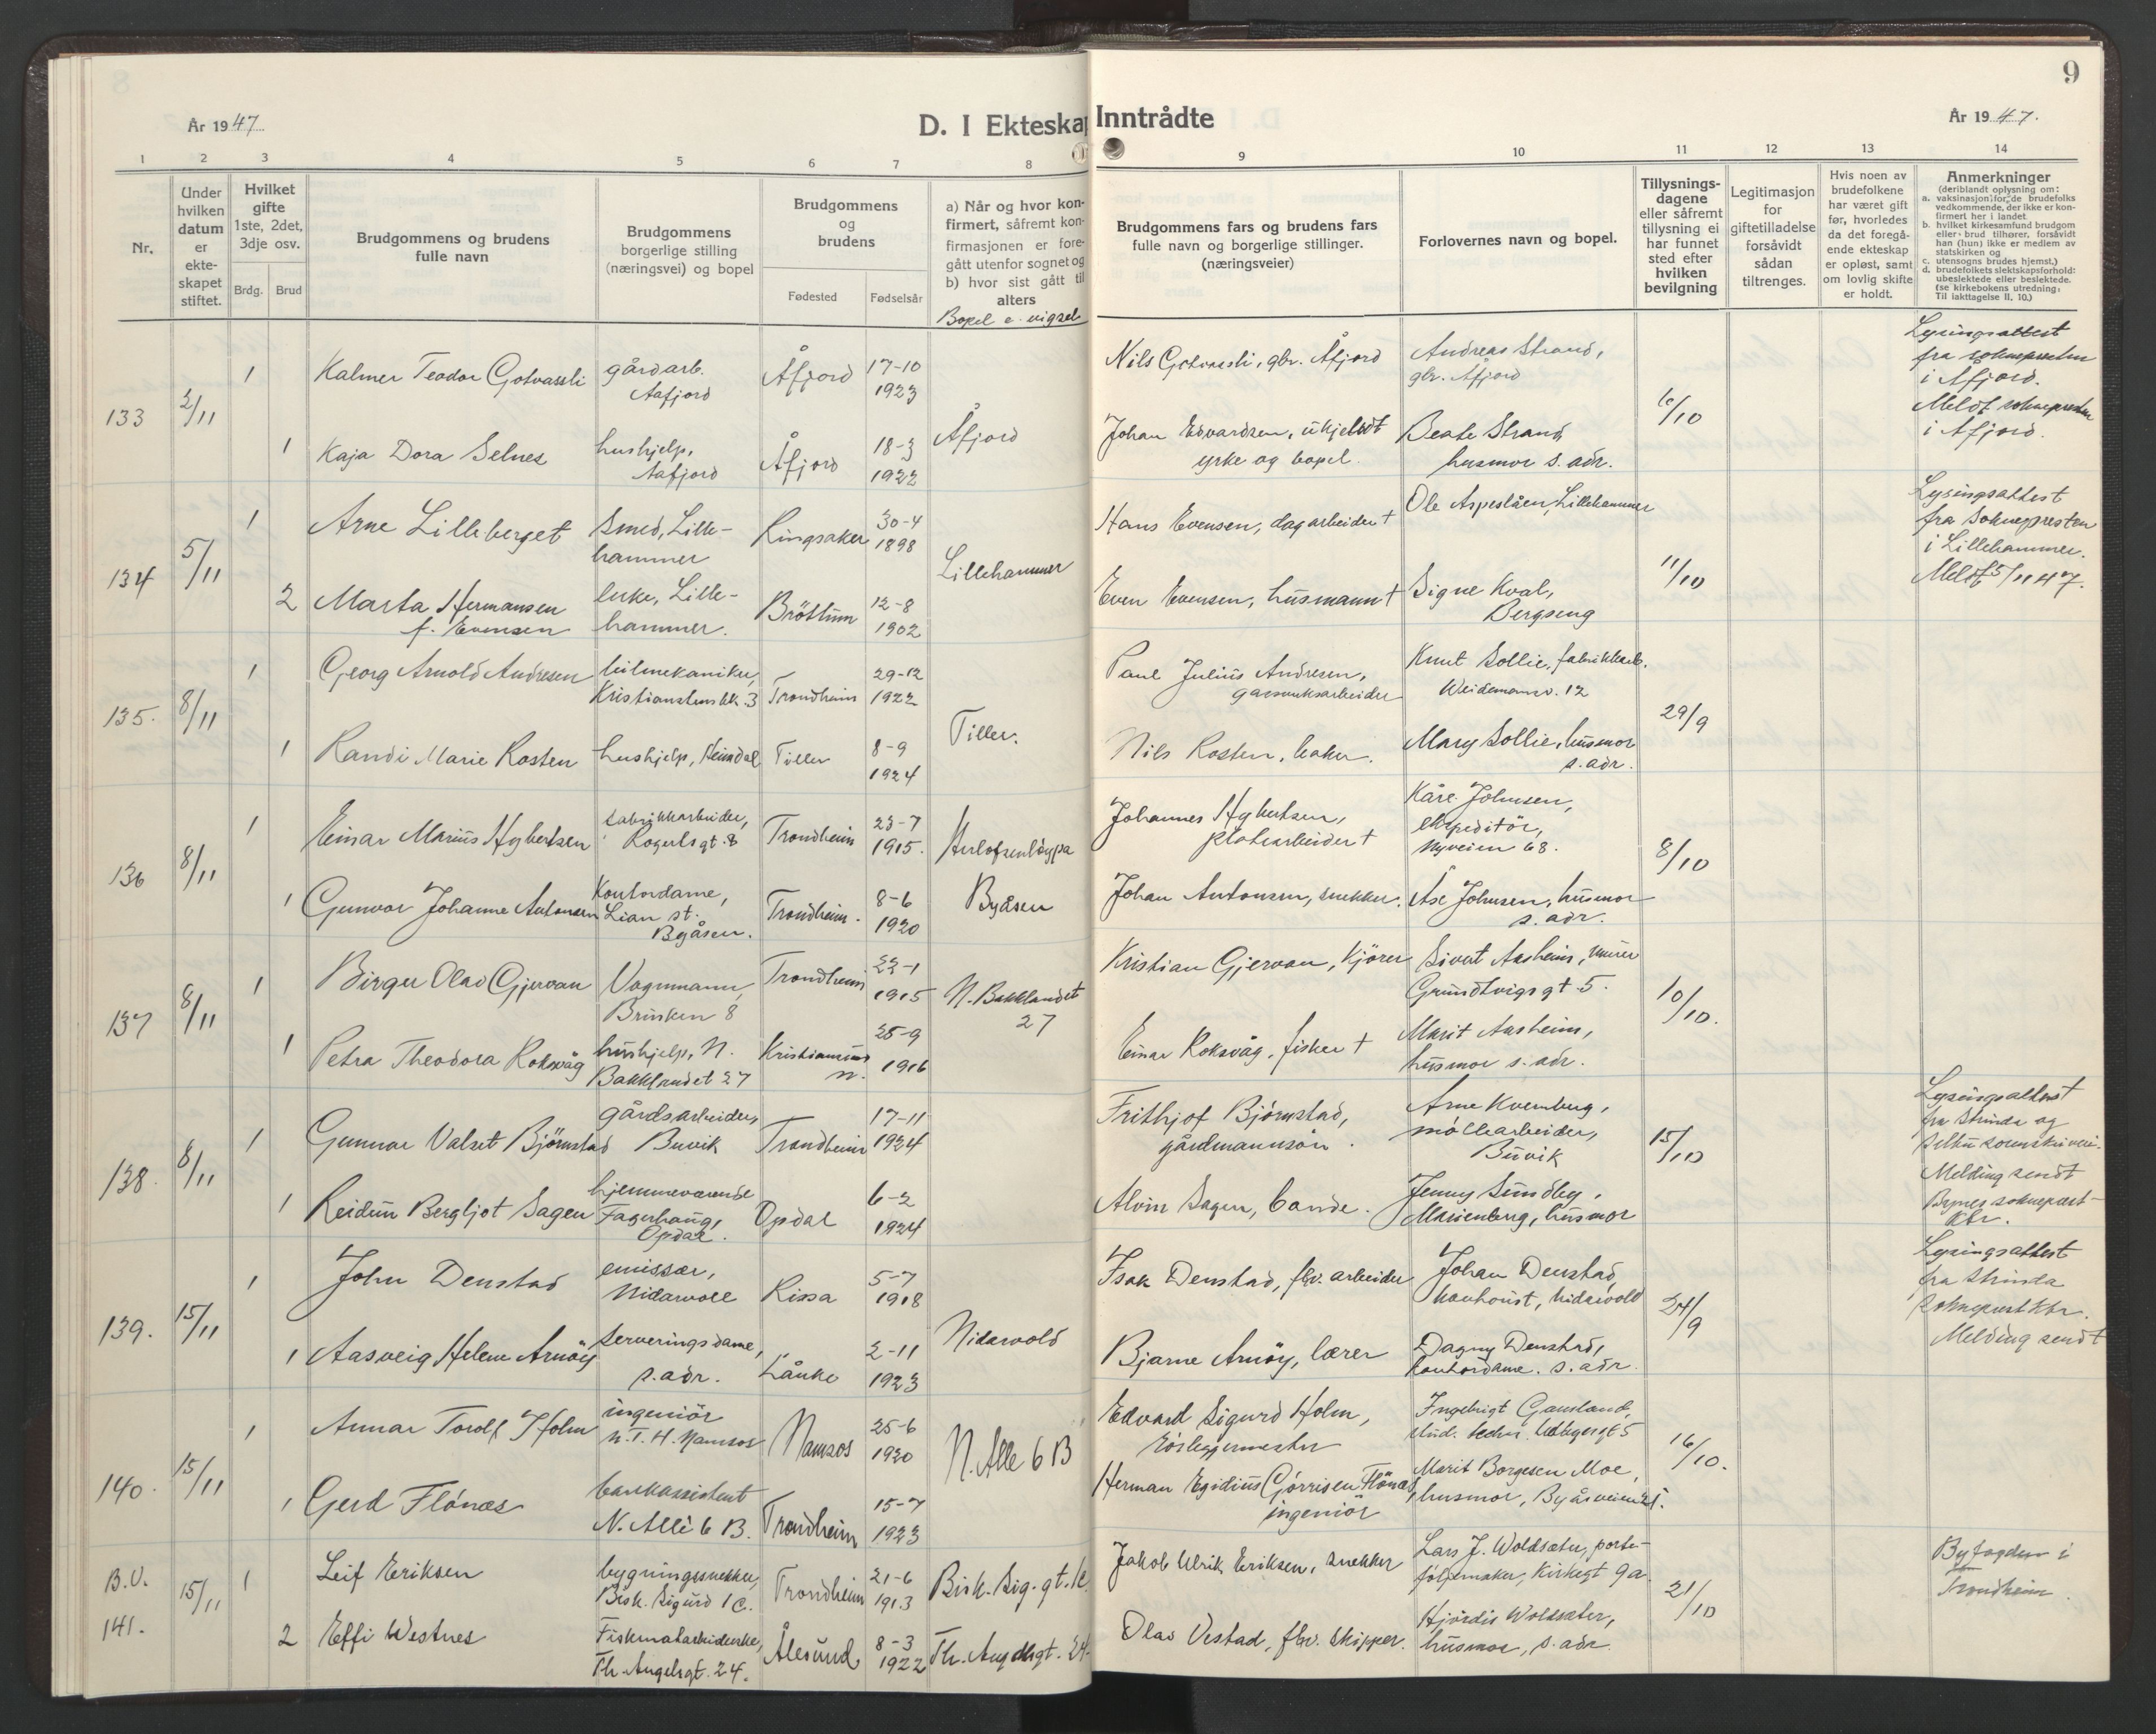 8
År 1947
D. I Ekteskap
Inntrådte
År 1947.
9
1
2
3
4
5
6
7
8
9
10
11
12
13
14
Nr.
Under hvilken datum er ekteskapet stiftet.
Hvilket gifte 1ste, 2det, 3dje osv.
Brdg.
Brud
Brudgommens og brudens fulle navn
Brudgommens borgerlige stilling (næringsvei) og bopel
Brudgommens og brudens
Fødested
Fødselsår
a) Når og hvor konfirmert, såfremt konfirmasjonen er foregått utenfor sognet og b) hvor sist gått til alters
Bopel e. vigsel
Brudgommens fars og brudens fars fulle navn og borgerlige stillinger. (næringsveier)
Forlovernes navn og bopel.
Tillysningsdagene eller såfremt tillysning ei har funnet sted efter hvilken bevilgning
Legitimasjon for giftetilladelse forsåvidt sådan tiltrenges.
Hvis noen av brudefolkene har været gift før, hvorledes da det foregående ekteskap er opløst, samt om lovlig skifte er holdt.
Anmerkninger
(deriblandt oplysning om:
a. vaksinasjon for, de brudefolks vedkommende, der ikke er konfirmert her i landet
b. hvilket kirkesamfund brudgom eller brud tilhører, forsåvidt han (hun) ikke er medlem av statskirken og
c. utensogns brudes hjemst.)
d. brudefolkets slektskapsforhold: ubeslektede eller beslektede.
(se kirkebokens utredning: Til iakttagelse II, 10.)
133
2/11
1
Kalmer Teodor Gotvassli
gårdarb. Aafjord
Åfjord
17-10 1923
Åfjord
Nils Gotvassli, gbr. Åfjord
Andreas Strand, gbr. Åfjord
6/10
Lysingsattest fra soknepresten i Åfjord. Meldt soknepresten i Åfjord.
1
Kaja Dora Selnes
hushjelp, Aafjord
Åfjord
18-3 1922
Johan Edvardsen, ukjendt yrke og bopel.
Beate Strand, husmor s. adr.
134
5/11
1
Arne Lilleberget
Smed, Lillehammer
Ringsaker
30-4 1898
Lillehammer
Hans Evensen, dagarbeider +
Ole Aspeslåen, Lillehammer
11/10
Lysingsattest fra Soknepresten i Lillehammer. Meldt 5/11 47.
2
Marta Hermansen f. Evensen
Lillehammer.
Brøttum
12-8 1902
Even Evensen, husmann +
Signe Kval, Bergseng
135.
8/11
1
Georg Arnold Andresen
bilmekaniker, Kristianstensbk. 3
Trondheim
29-12 1922
Tiller.
Paul Julius Andresen, gassverksarbeider
Knut Sollie, fabrikkarb. Weidemansv. 12
29/9
1
Randi Marie Rosten
hushjelp, Heimdal
Tiller
8-9 1924
Nils Rosten, baker.
Mary Sollie, husmor s. adr.
136
8/11
1
Einar Marius Hybertsen
fabrikkarbeider, Rogertsgt. 8
Trondheim
23-7 1915.
Herlofsenløypa Byåsen
Johannes Hybertsen, platearbeider +
Kåre Johnsen, ekspeditør, Nyveien 68.
8/10
1
Gunvor Johanne Antonsen
Kontordame, Lian st. Byåsen.
Trondheim.
8-6 1920
Johan Antonsen, snekker.
Åse Johnsen, husmor s. adr.
137
8/11
1
Birger Olav Gjervan
Vognmann, Brinken 8
Trondheim
22-1 1915
N. Bakklandet 27
Kristian Gjervan, Kjører
Sivert Aasheim, murer Grundtvigsgt 5.
10/10.
1
Petra Theodora Roksvåg
hushjelp, N. Bakklandet 27
Kristiansund n.
25-9 1916
Einar Roksvåg, fisker +
Marit Aasheim, husmor s. adr.
138.
8/11
1
Gunnar Valset Bjørnstad
gårdsarbeider, Buvik
Trondheim
17-11 1924
Frithjof Bjørnstad, gårdmannsøn.
Arne Kvernberg, møllearbeider, Buvik
15/10
Lysingsattest fra Strinda og Selbu sorenskriveri. Melding sendt Bynes sokneprestktr.
1
Reidun Bergljot Sagen
hjemmeværende Fagerhaug, Opdal.
Opdal
6-2 1924
Alvin Sagen, bonde.
Jenny Sundby, Marienberg, husmor
139.
15/11
1
John Denstad
emissær, Nidarvoll
Rissa
5-7 1918
Nidarvold
Isak Denstad, fhv. arbeider
Johan Denstad, Nidarvold
24/9
Lysingsattest fra Strinda sokneprestktr. Melding sendt
1
Aasveig Helene Arnøy
serveringsdame, s. adr.
Lånke
2-11 1923
Bjarne Arnøy, lærer
Dagny Denstad, kontordame. s. adr.
140.
15/11
1
Annar Torolf Holm
ingeniør N.T.H. Namsos
Namsos
25-6 1920
N. Alle 6 B
Edvard Sigurd Holm, rørleggermester
Ingebrigt Gausland, stud. techn.
16/10.
1
Gerd Flönæs
bankassistent N. Allè 6 B.
Trondheim
15-7 1923
Herman Egidius Gørrisen Flönæs, ingeniör
Marit Borgesen Moe, husmor, Byåsveien
B.V. 141.
15/11
1
Leif Eriksen
bygningssnekker, Bisk. Sigurd 1 C.
Trondheim
21-6 1913
Bisk. Sig. gt. 1c
Jakob Ulrik Eriksen, snekker
Lars J. Woldsæter, porteføljemaker, Kirkegt 9a
21/10
Byfogden i Trondheim.
2
Effi Westnes
Fiskmatarbeiderske, Th. Angelsgt. 24.
Ålesund
8-3 1922
Th. Angelsgt. 24
Olav Vestad, fhv. skipper.
Hjördis Woldsæter, husmor, s. adr.